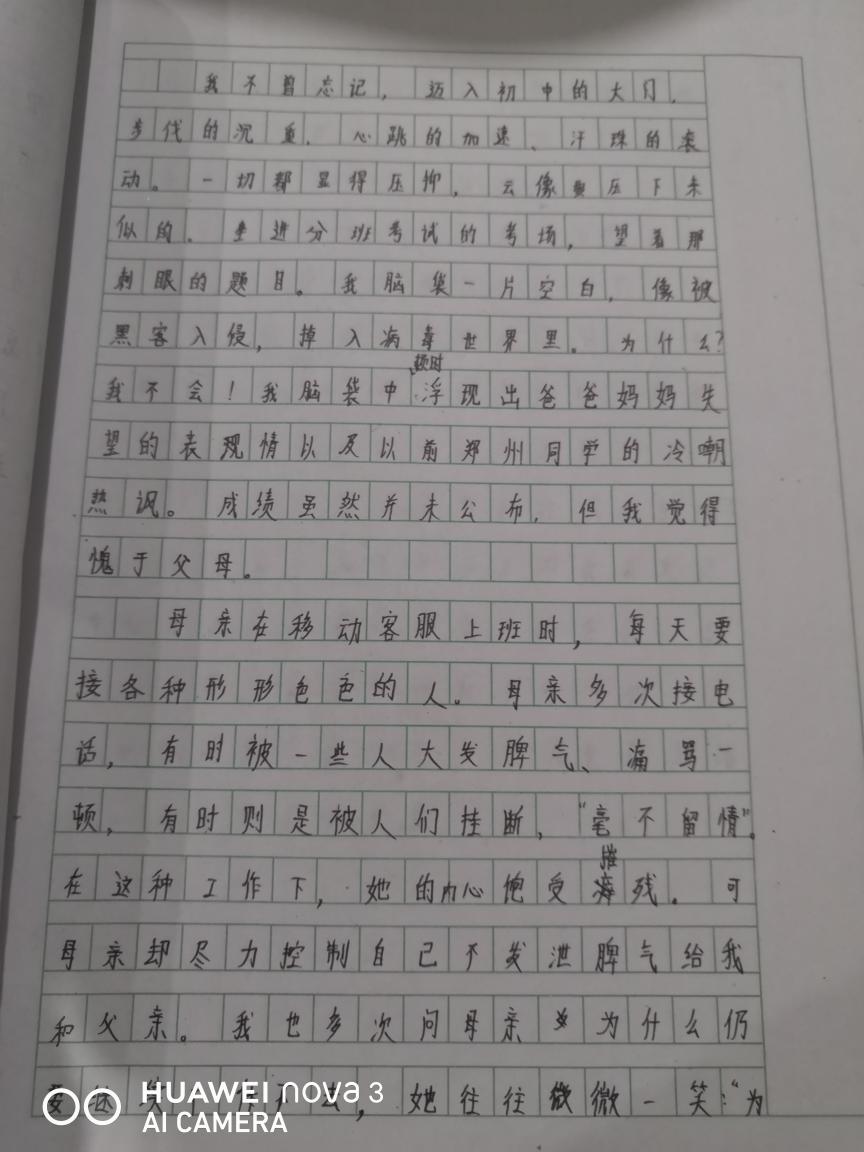 我不曾忘记，迈入初中的大门，
步伐的沉重、心跳的加速、汗珠的表
动。一切都显得压抑，云像要压下来
似的。走进分班考试的考场，望着那
刺眼的题目。我脑袋一片空白，像被
黑客入侵，掉入病毒世界里。为什么？
顿时
我不会！我脑袋中浮现出爸爸妈妈失
望的表现情以及以前郑州同学的冷嘲
热讽。成绩虽然并未公布，但我觉得
愧于父母。
母亲在移动客服上班时，每天要
接各种形形色色的人。母亲多次接电
话，有时被一些人大发脾气、痛骂一
顿，有时则是被人们挂断，“毫不留情”。
摧
在这种工作下，她的内心饱受残。可
母亲却尽力控制自己不发泄脾气给我
和父亲。我也多次问母亲为什么仍
要继，她往往微微一笑：“为
HUAWEI nova 3
AI CAMERA